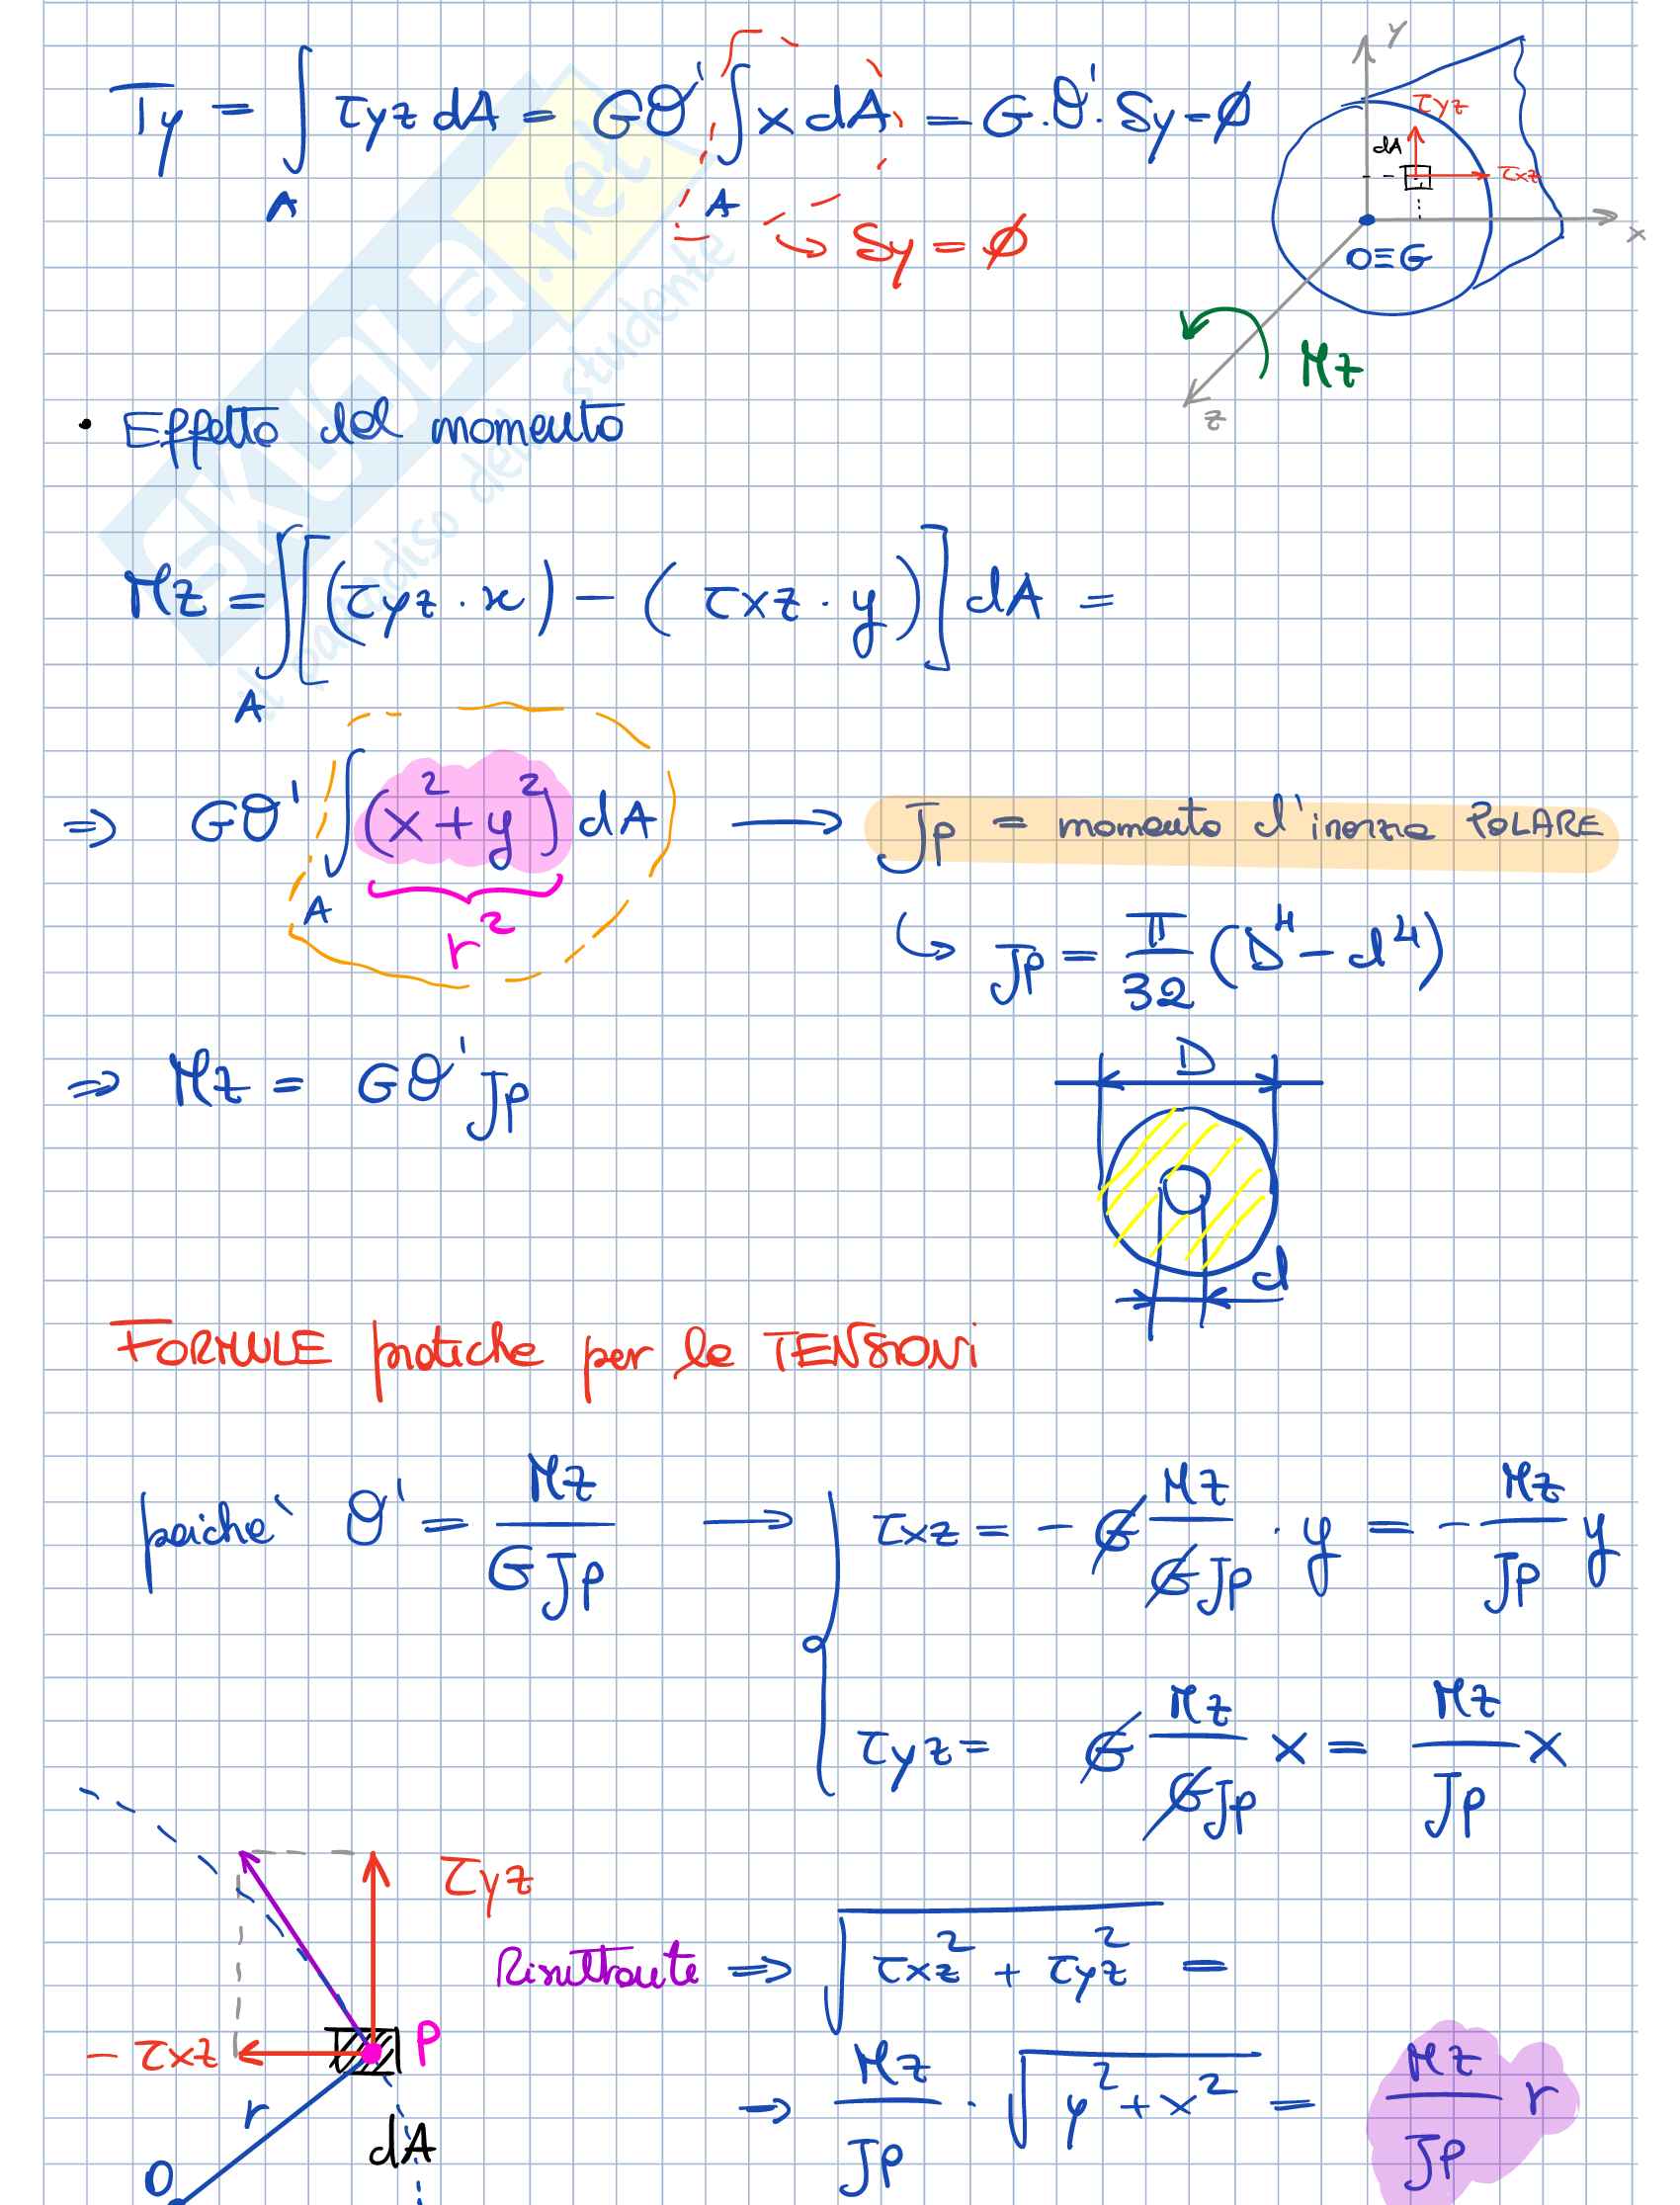 Ty = ∫A τyz dA = Gθ' ∫A x dA = G·θ'·Sy = ∅
Sy = ∅
y
τyz
dA
τxz
x
O≡G
Mz
z
SKUOLA.net
il paradiso dello studente
• Effetto del momento
Mz = ∫A [(τyz · x) − (τxz · y)] dA =
⇒ Gθ' ∫A (x² + y²) dA → Jp = momento d'inerzia POLARE
r²
↳ Jp = π/32 (D⁴ − d⁴)
⇒ Mz = Gθ' Jp
D
d
FORMULE pratiche per le TENSIONI
poiché θ' = Mz/GJp → { τxz = − G Mz/GJp · y = − Mz/Jp y
τyz = G Mz/GJp x = Mz/Jp x
τyz
Risultante ⇒ √τxz² + τyz² =
− τxz
P
→ Mz/Jp · √y² + x² = Mz/Jp r
r
dA
O